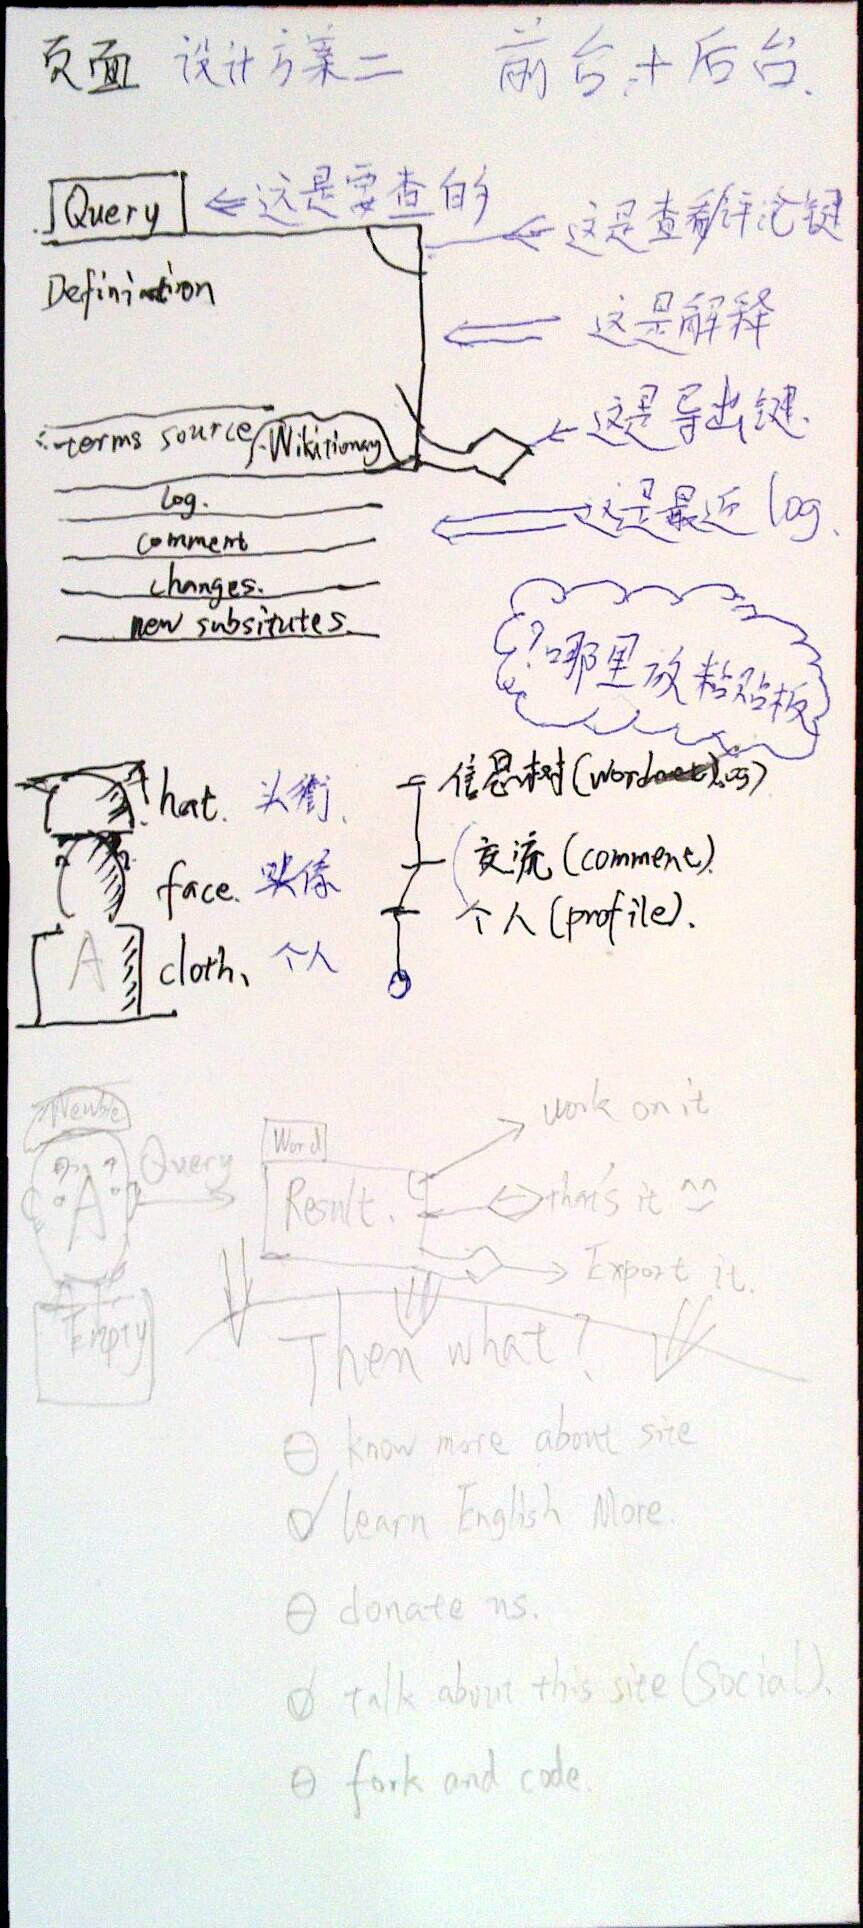 页面 设计方案二 前台+后台.
Query
这是要查的
这是查看评论键
Definiation
这是解释
terms source
Wikitionay
这是导出键.
log.
这是最近 log.
comment
changes.
new subsitutes.
?哪里放粘贴板
hat. 头衔.
信息树(
交流 (comment).
face. 映像
个人 (profile).
A
cloth、个人
Newbie
work on it
Query
Word
A
Result.
that's it ^^
Export it.
Empty
Then what?
know more about site
learn English More.
donate us.
talk about this site (Social).
fork and code.